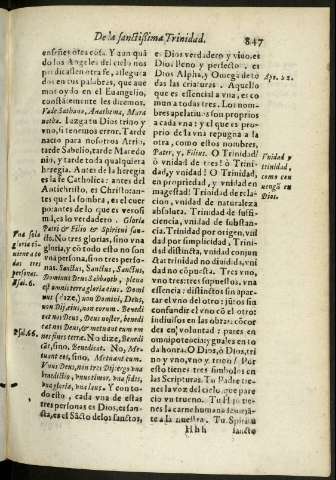 De la sanctissima Trinidad. 847
enseñes otra cosa. Y aun quã
do los Angeles del cielo nos
predicassen otra fe, assegura
dos en tus palabras, que oy
mos oy do en el Euangelio,
constãtemente les diremos,
Vade Sathana, Anathema, Mara
natha. Iuzgate Dios trino y
vno, si tenemos error. Tarde
nacio para nosotros Arrio,
tarde Sabelio, tarde Macedo
nio, y tarde toda qualquiera
heregia. Antes de la heregia
es la fe Catholica: antes del
Antichristo, es Christo: an-
tes que la sombra, es el cuer
po: antes de lo que es vero-
simil, es lo verdadero. Gloria
Patri & Filio & Spiritui san-
cto. No tres glorias, sino vna
gloria, y con todo esto no son
vna persona, sino tres perso-
nas. Sanctus, Sanctus, Sanctus,
Dominus Deus Sabaoth, plena
est omnis terra gloria eius. Domi
nus (dize) non Domini, Deus,
non Dij, eius, non eorum. Benedi
cat nos Deus, Deus noster, benedi
cat nos Deus, & metuant eum om
nes fines terræ. No dize, Benedi
cat, sino, Benedicat. No, Me-
tuant eos, sino, Metuant eum.
Y vn Deus, non tres Dij: ergo vna
vna fides,
vna gloria, vna laus. Y con to-
do esto, cada vna de estas
tres personas es Dios, es san-
cta, es el Sãcto de los sanctos,
Vna sola
gloria tie
nen todas
tres
personas.
Psal. 6.
Psal. 66.
e Dios verdadero y viuo, es
Dios lleno y perfecto. es
Dios Alpha, y Omega de to
das las criaturas. Aquello
que es essencial a vna, es co
mun a todas tres. Los nom-
bres apelatiuos son proprios
a cada vna: y el que es pro-
prio de la vna repugna a la
otra, como estos nombres,
Pater, y, Filius. O Trinidad!
ò vnidad de tres! ò Trini-
dad, y vnidad! O Trinidad,
en propriedad, y vnidad en
magestad! Trinidad de rela-
cion, vnidad de naturaleza
absoluta. Trinidad de suffi-
ciencia, vnidad de substancia.
Trinidad por origen, vni
dad por simplicidad, Trini-
dad distincta, vnidad conjunta
Trinidad no diuidida, vni
dad no cõpuesta. Tres vno,
vno tres, vno supuestos: vna
essencia: distinctos sin apar-
tar el vno del otro: juntos sin
confundir el vno cõ el otro:
indiuisos en las obras: cõcor
des en voluntad: pares en
omnipotencia: yguales en to
da honra. O Dios, ò Dios, tri
no y vno, vno y trino! Por
esto tienes tres simbolos en
las Scripturas. Tu Padre tie-
nes la voz del cielo, que pare
cio vn trueno. Tu Hijo tie-
nes la carne humana semejã-
te a la nuestra. Tu Spiritu
Apo. 22.
Vnidad y
trinidad,
como con
uengã en
Dios.
Hhh sancto